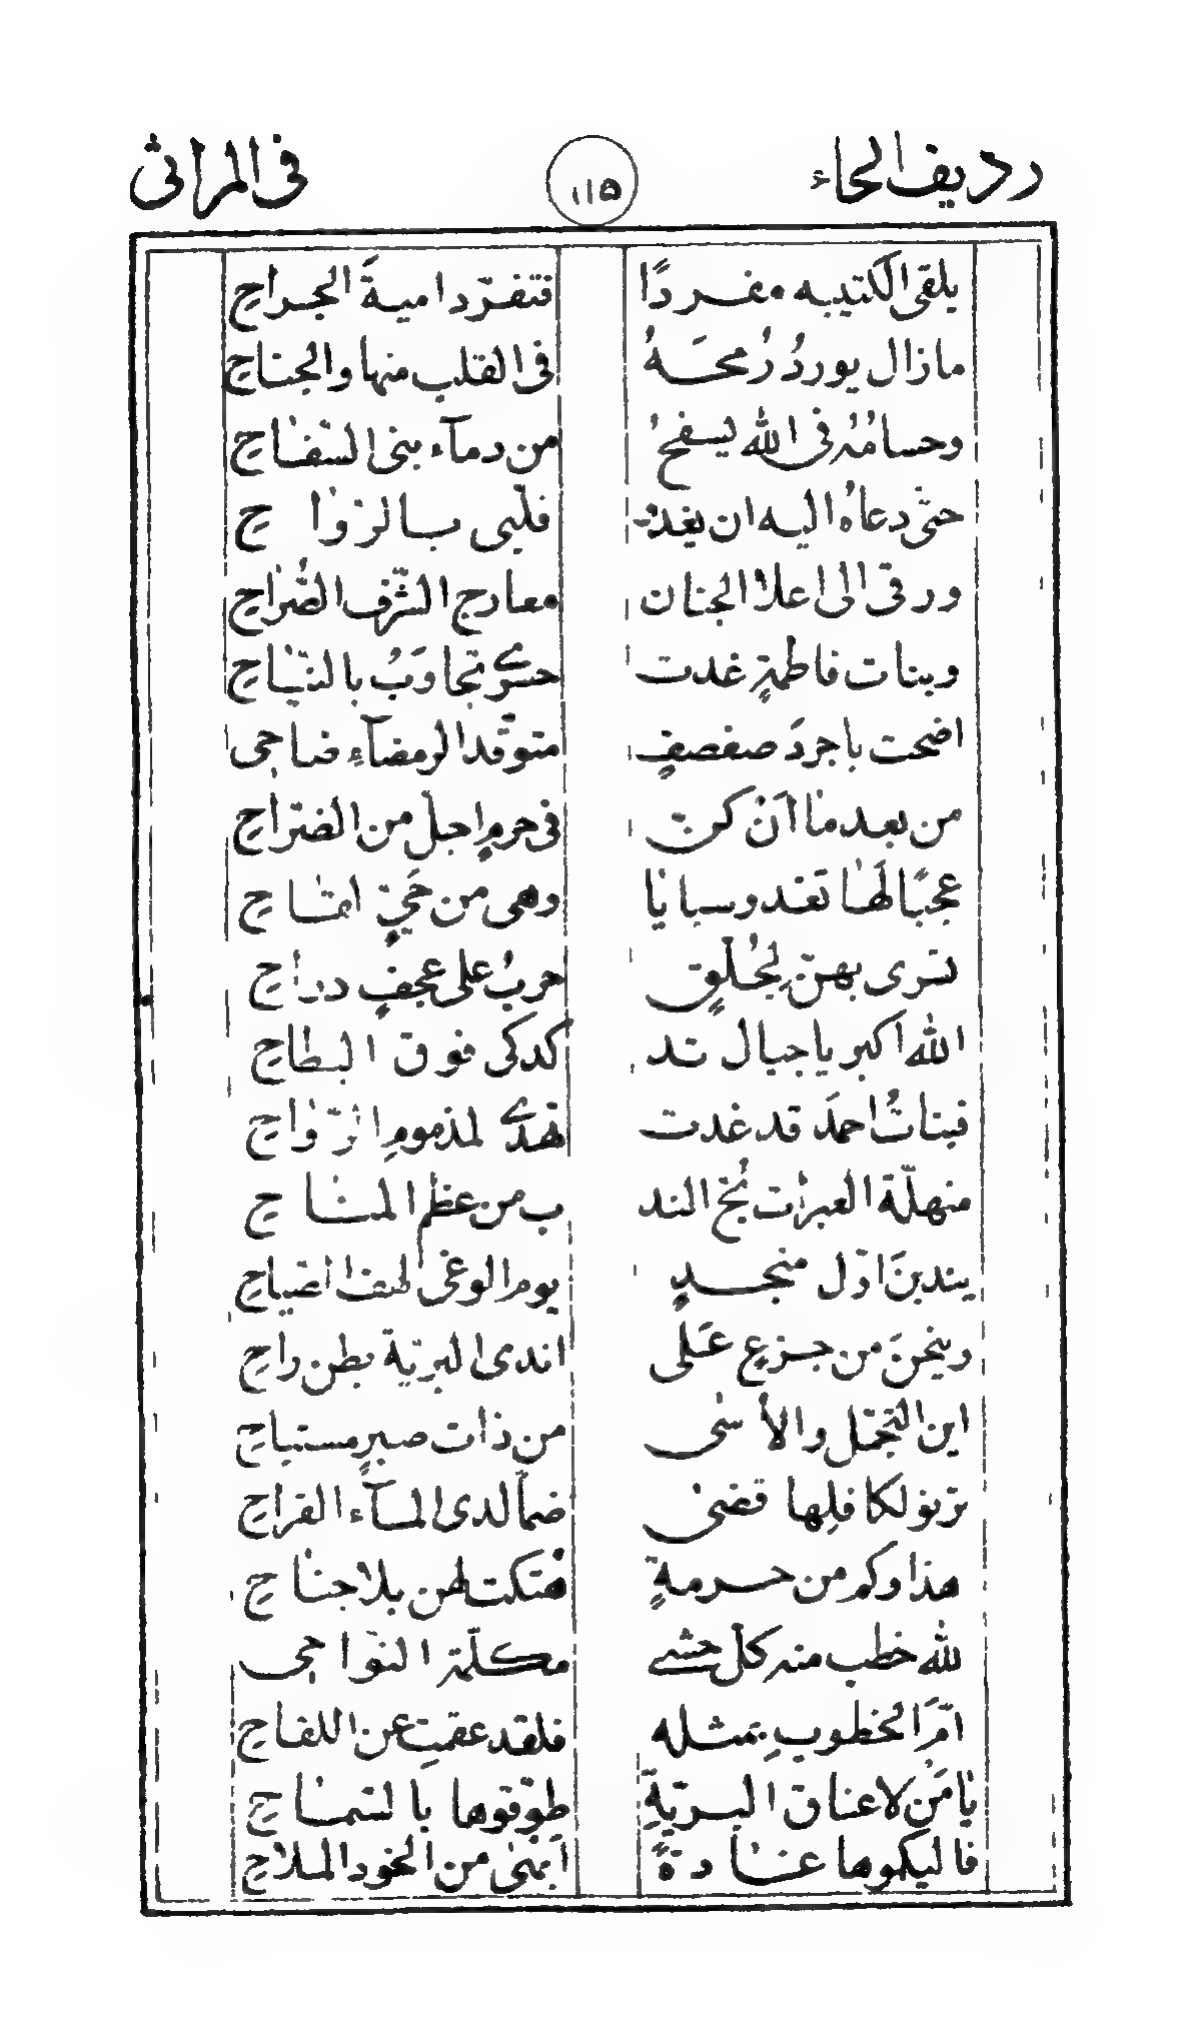 رديف الحاء ١١٥ فى المراثى
يلقى الكتيبه مفردًا فتفرّ دامية الجراح
مازال يورد رُمحَهُ فى القلب منها والجناح
وحسامُهُ فى الله يسفحُ من دمآء بنى السّفاح
حتّى دعاهُ اليه ان يغدو فلبّى بالرّواح
ورقى الى اعلا الجنان معارج الشّرف الصُّراح
وبنات فاطمةٍ غدت حسرى تجاوَبُ بالنّياح
اضحت باجردَ صفصفٍ متوقّد الرمضآء ضاحى
من بعد ما ان كنّ فى حرمٍ اجلّ من الضّراح
عجبًا لها تغدو سبايا وهى من حَيّ لقاح
تسرى بهنّ لجُلّقٍ حربُ على عجفٍ رداح
الله اكبر يا جبال تد كدكى فوق البطاح
فبناتُ احمدَ قد غدت تهدى لمذموم الرّواح
منهلّة العبرات بُحّ الند ب من عظم المناح
يندبنَ اوّل منجدٍ يوم الوغى لهف الصياح
وينحنَ من جزعٍ عَلى اندى البريّة بطن راح
اين التّجمّل والأسى من ذات صبرٍ مستباح
ترنو لكافلها قضى ضمأً لدى المآء القراح
هذا وكم من حرمةٍ هُتكت لهن بلا جناح
لله خطب منه كلّ حشى مكلّمة النّواحى
امّرَ الخطوبِ بمثله فلقد عقمتِ عن اللقاح
يا مَن لاعناق البريّةِ طوّقوها بالسّماح
فاليكموها غادةً ابهى من الخود الملاح